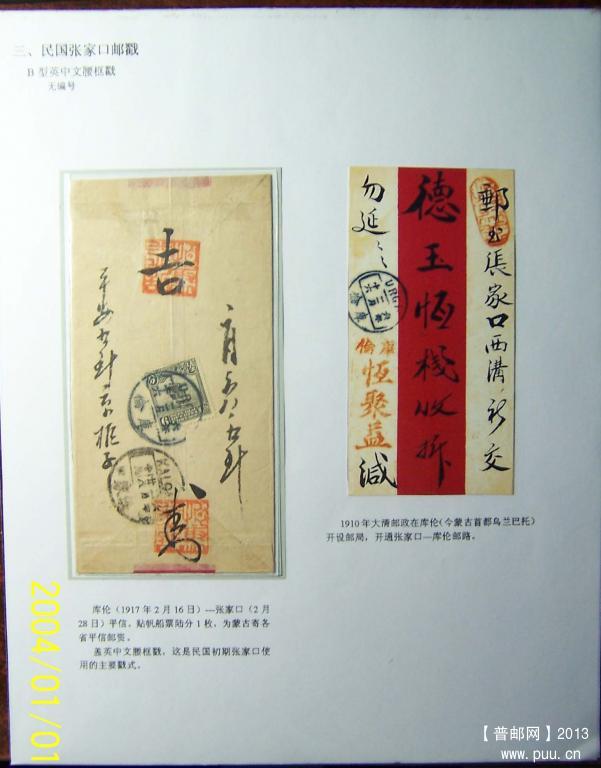 三、民国张家口邮戳
B 型英中文腰框戳
无编号
吉
郵至張家口西溝
交
德玉恒棧收拆
勿延
URGA
庫倫
庫倫
恒聚益
緘
1910 年大清邮政在库伦(今蒙古首都乌兰巴托)
开设邮局,开通张家口—库伦邮路。
库伦(1917 年 2 月 16 日)—张家口(2 月
28 日)平信,贴帆船票陆分 1 枚,为蒙古寄各
省平信邮资。
盖英中文腰框戳,这是民国初期张家口使
用的主要戳式。
2004/01/01
【普邮网】2013
www.puu.cn